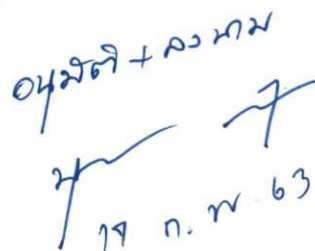 อนุมัติ + ลงนาม
ก.พ. 63